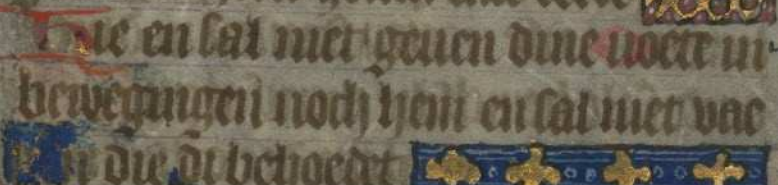 Hie en sal niet geuen dine uoete in
bewegingen noch hem en sal niet vae
ken die di behoedet